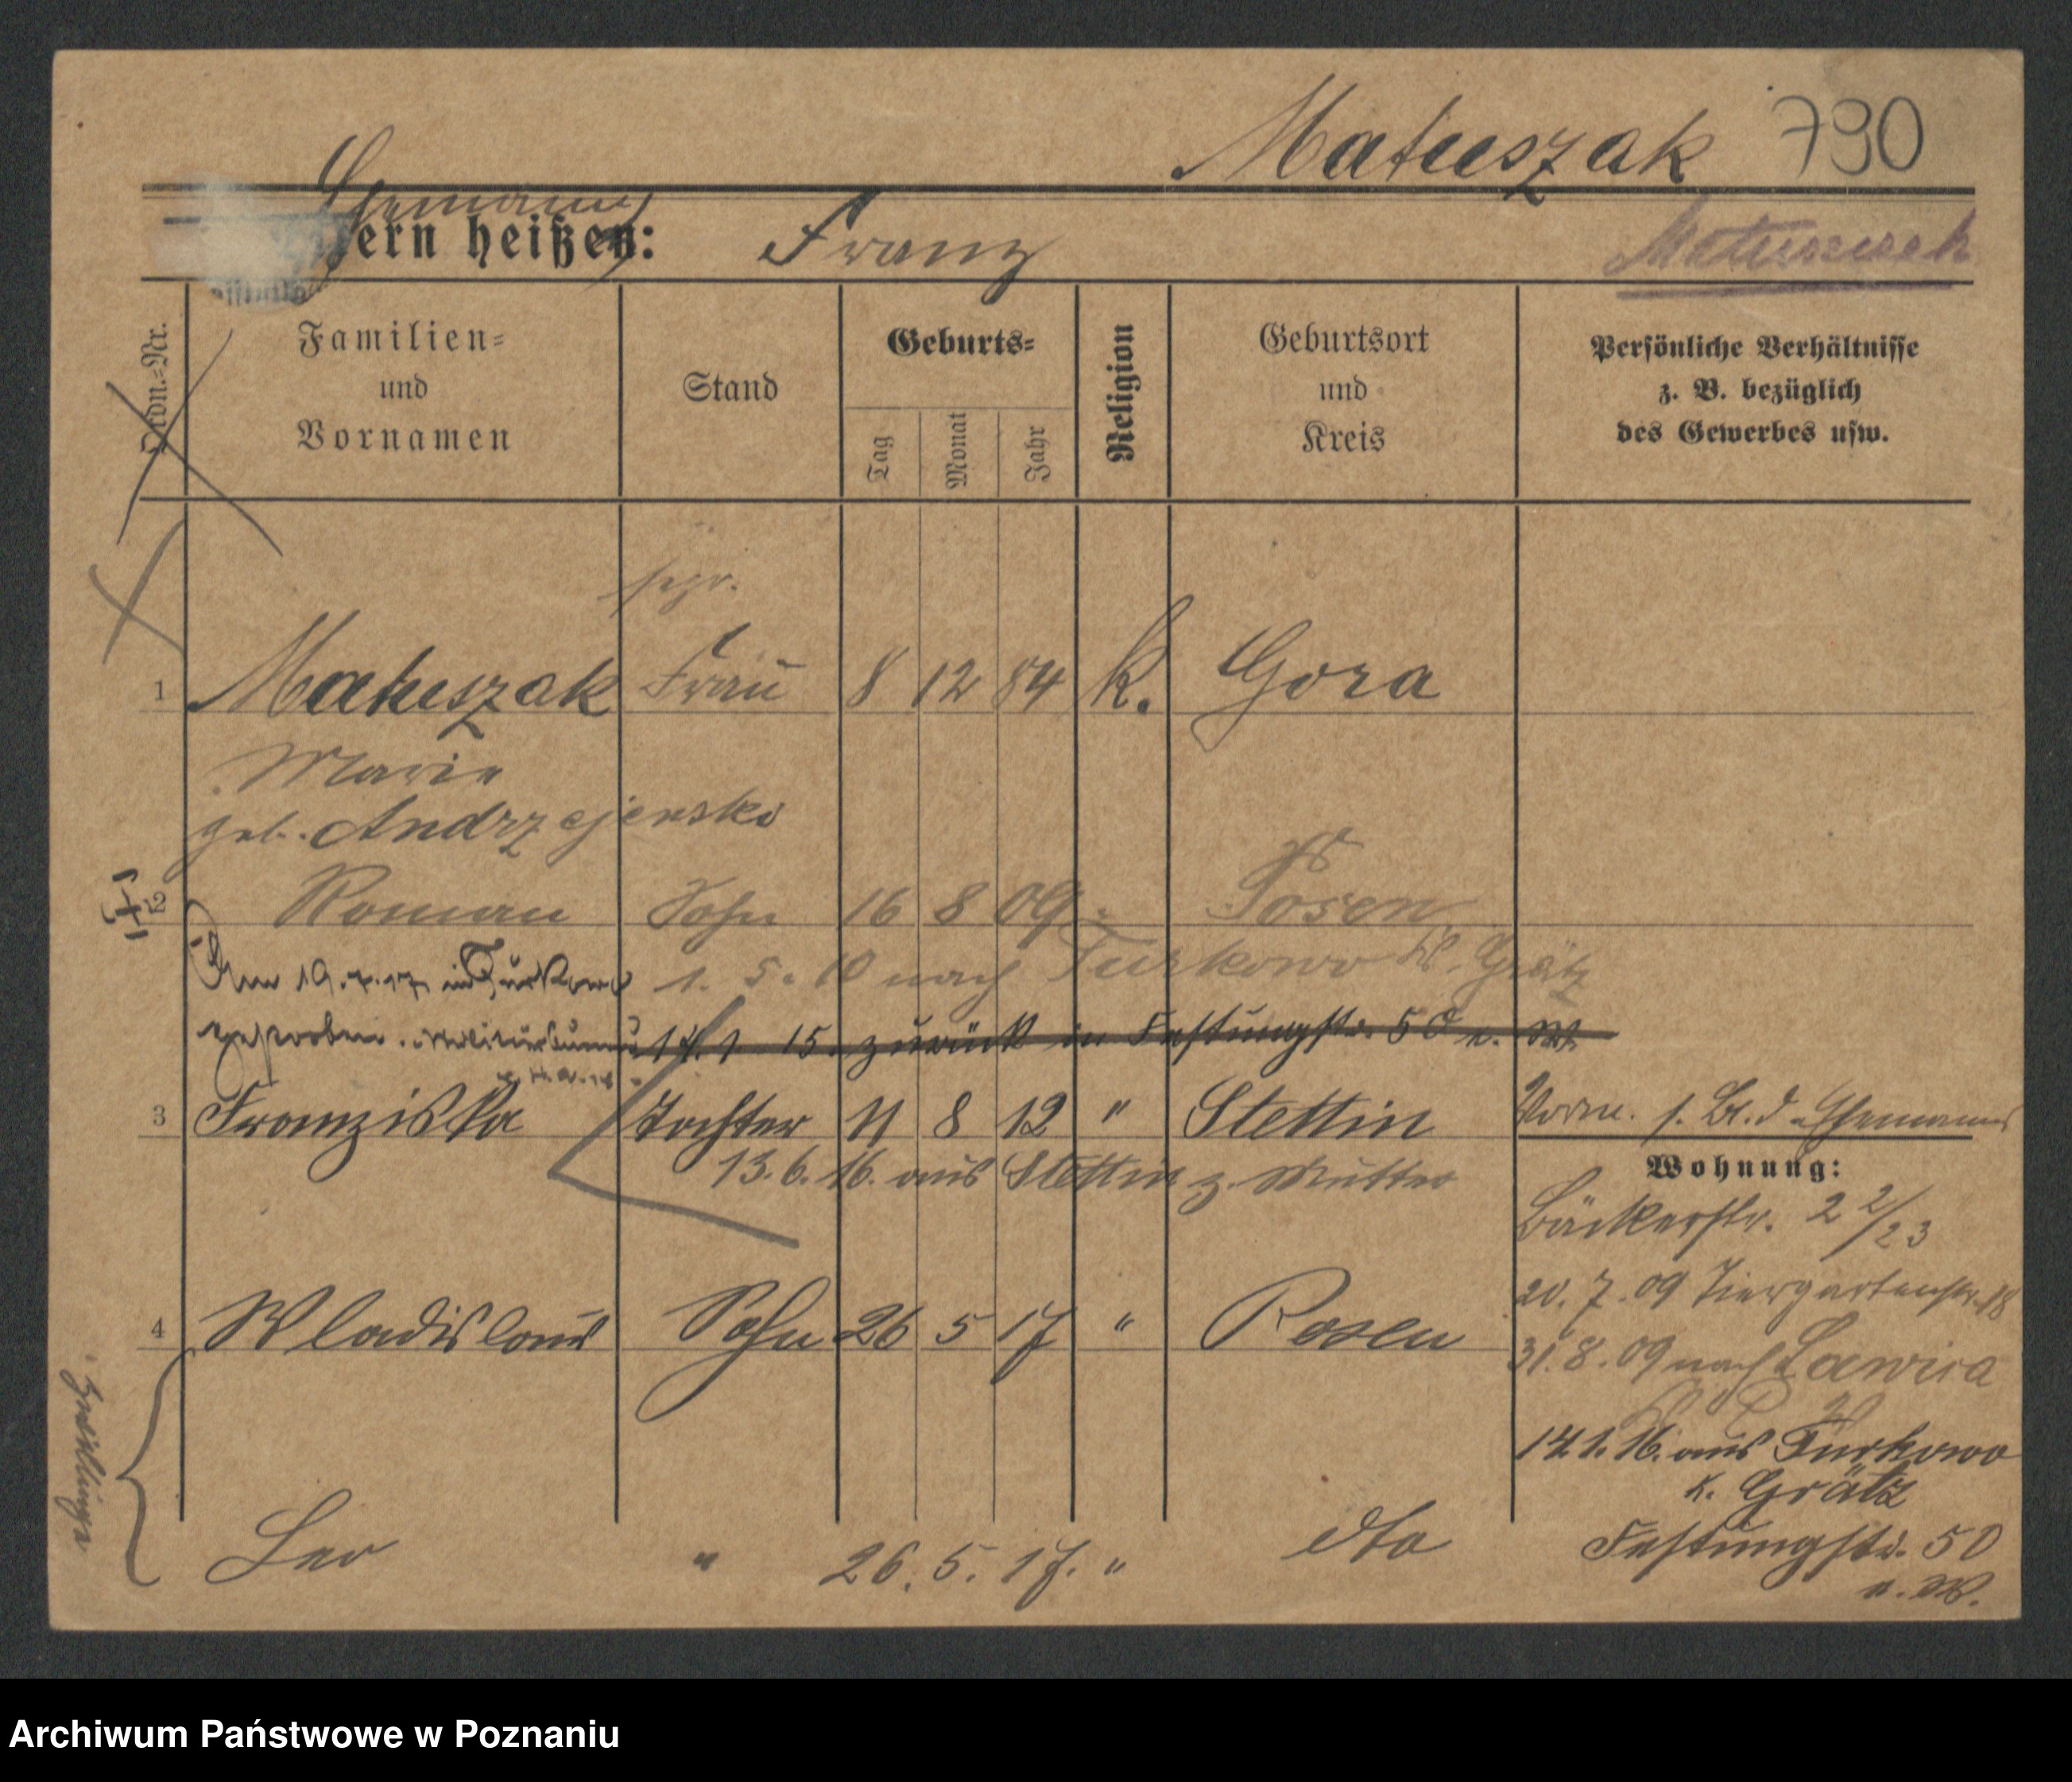 Matuszak 790
Ehemann
ern heißen: Franz
Matuszak
Ordn.=Nr.
Familien=
und
Vornamen
Stand
Geburts=
Tag
Monat
Jahr
Religion
Geburtsort
und
Kreis
Persönliche Verhältnisse
z. B. bezüglich
des Gewerbes usw.
sepr.
1 Matuszak Frau 8 12 84 K. Gora
Marie
geb. Andrzejewska
2 Roman Sohn 16 8 09 Posen
Am 19.7.17 in Turkowo
1. 5. 10 nach Turkowo Kr. Grätz
gestorben.
1. 15. zurück in Festungstr. 50 b. W.
3 Franziska Tochter 11 8 12 " Stettin
Vorm. s. Bl. d. Ehemannes
13. 6. 16. aus Stettin z. Mutter
Wohnung:
Bäckerstr. 22/23
20. 7. 09 Tiergartenstr. 18
4 Wladislaus Sohn 26 5 17 " Posen
31. 8. 09 nach Lawica
Zwillinge
1. 16. aus Turkowo
K. Grätz
Leo " 26. 5. 17. " dto
Festungstr. 50
b. W.
Archiwum Państwowe w Poznaniu